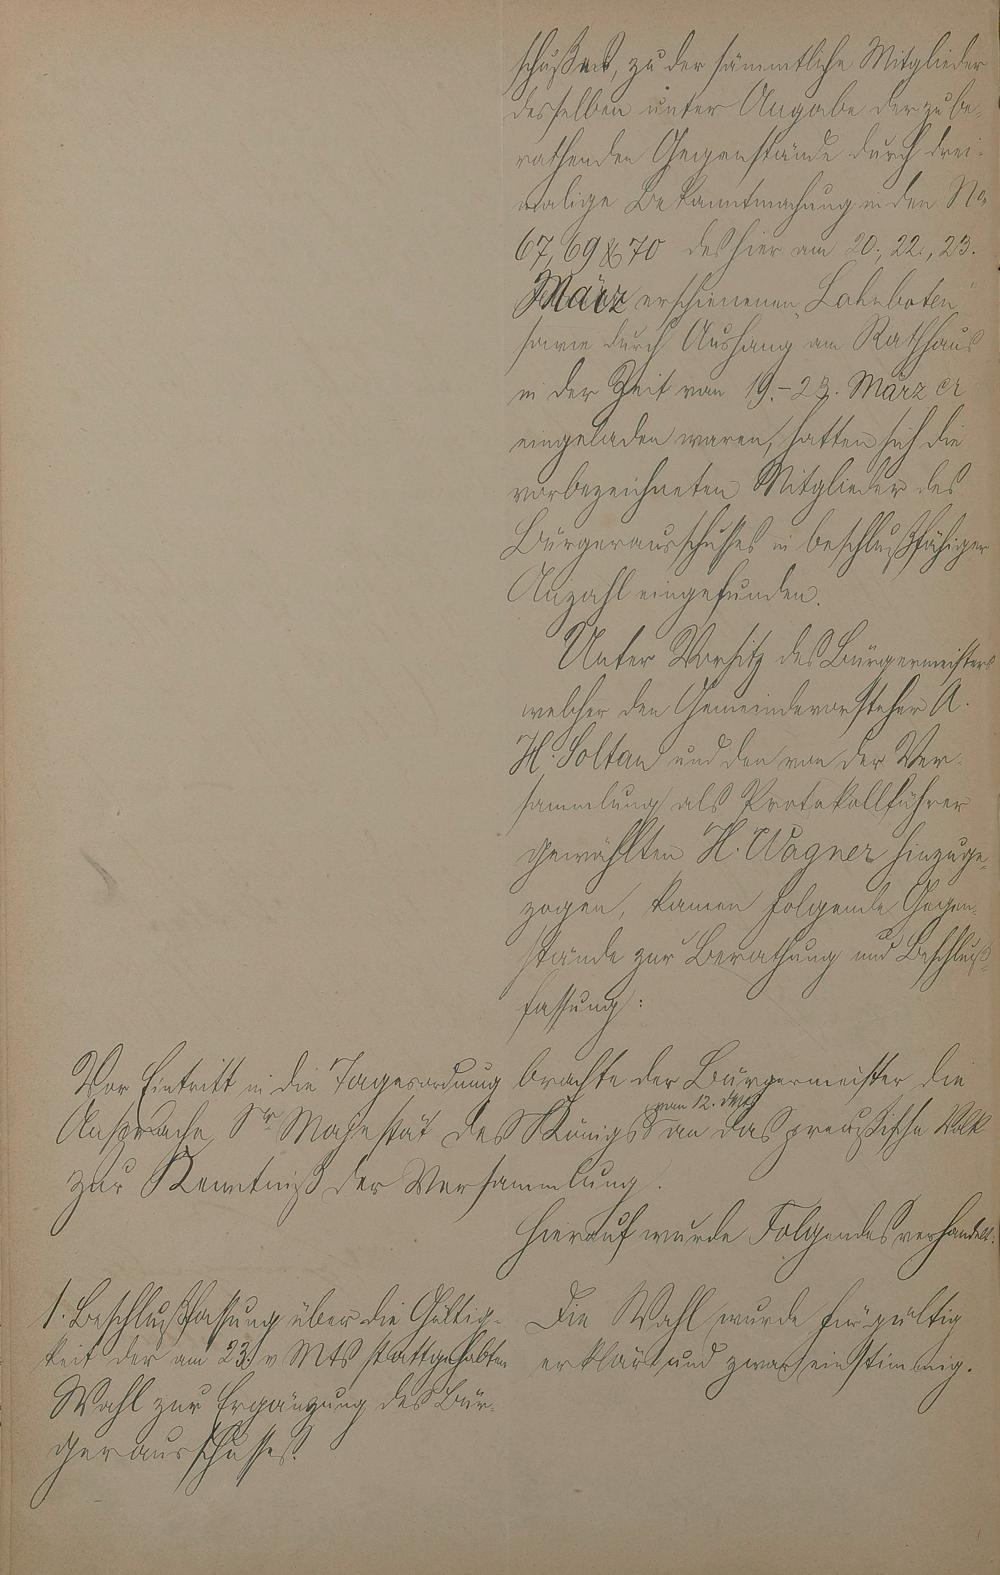 schußes, zu der sämmtliche Mitglieder
desselben unter Angabe der zu be-
rathenden Gegenstände durch drei-
malige Bekanntmachung in den No
67, 69 & 70 des hier am 20., 22., 23.
März erschienenen „Lahnboten"
sowie durch Aushang am Rathhaus
in der Zeit vom 19.-23. März cr
eingeladen waren, hatten sich die
vorbezeichneten Mitglieder des
Bürgerausschusses in beschlußfähiger
Anzahl eingefunden.
Unter Vorsitz des Bürgermeisters
welcher den Gemeindevorsteher A.
H. Soltau und den von der Ver-
sammlung als Protokollführer
gewählten H. Wagner hinzuge-
zogen, kamen folgende Gegen-
stände zur Berathung und Beschluß-
fassung:
Vor Eintritt in die Tagesordnung brachte der Bürgermeister die
vom 12. d Mts
Ansprache Sr Majestät des Königs an das preußische Volk
zur Kenntniß der Versammlung.
Hierauf wurde Folgendes verhandelt:
1. Beschlußfassung über die Gültig-
keit der am 23. v Mts stattgehabten
Wahl zur Ergänzung des Bür-
gerausschusses.
Die Wahl wurde für gültig
erklärt und zwar einstimmig.